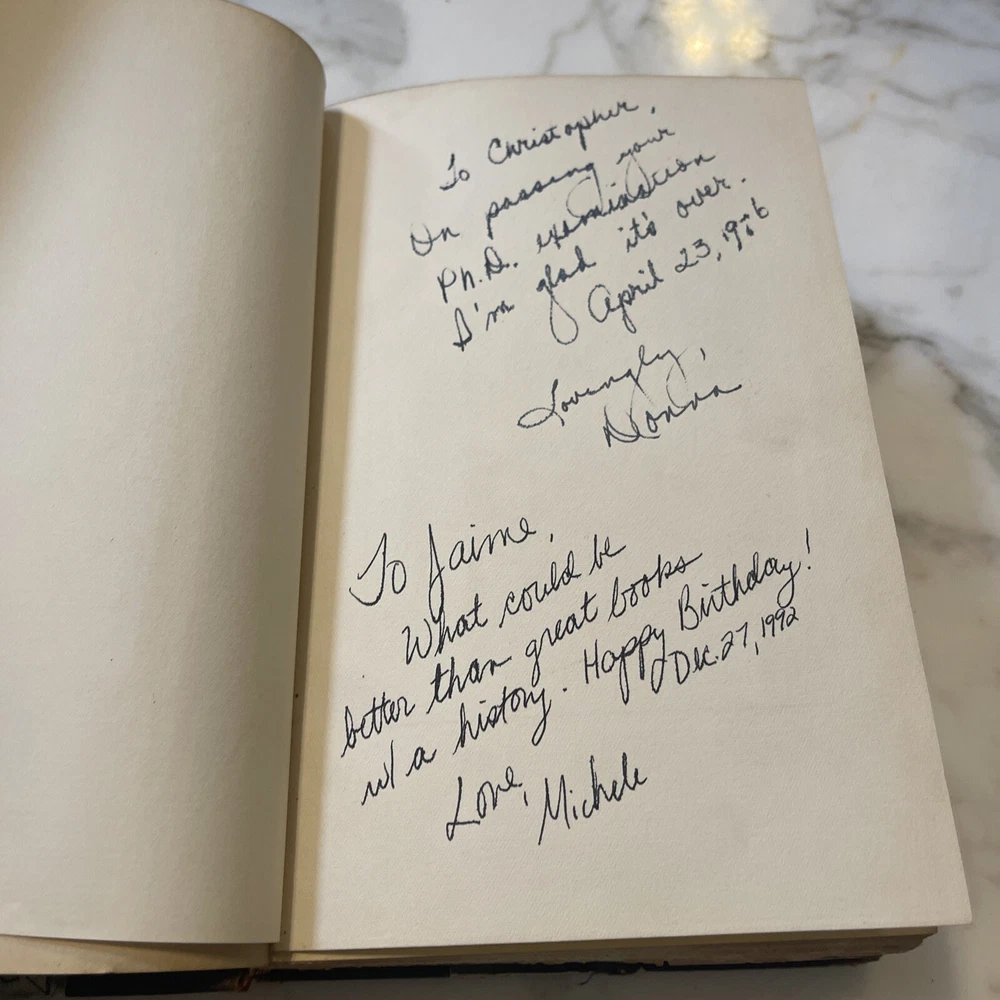 To Christopher,
On passing your
Ph.D. examination
I'm glad it's over.
April 23,
Lovingly,
Donna
To Jaime,
What could be
better than great books
w/ a history. Happy Birthday!
Dec. 27, 1992
Love,
Michele